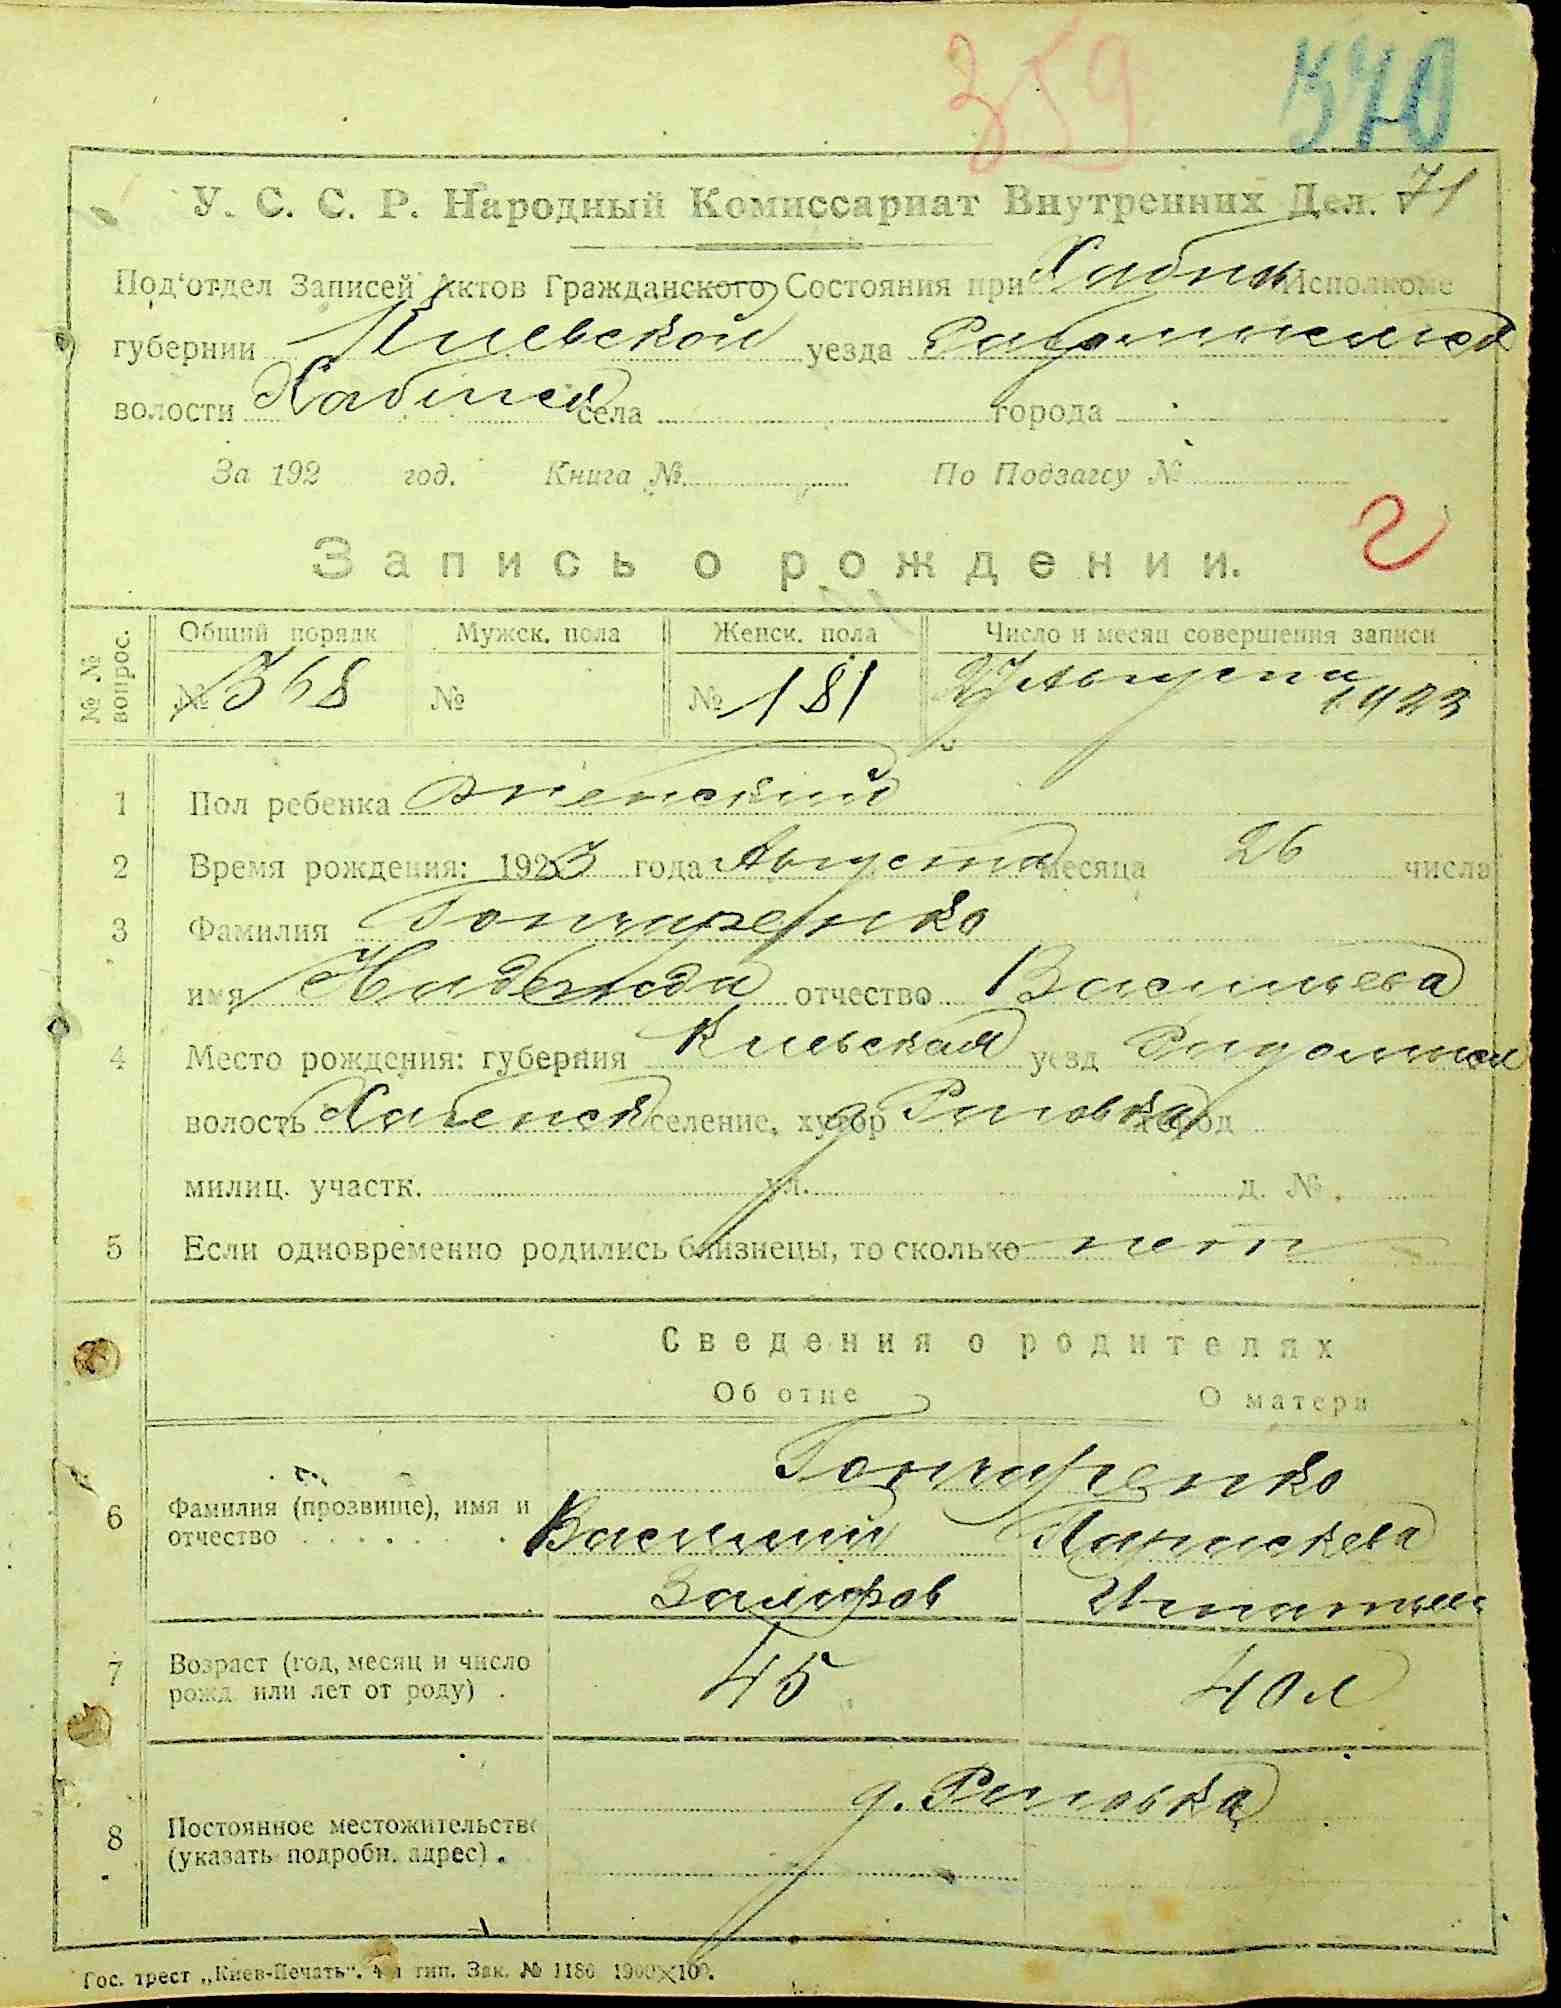 359 370
У. С. С. Р. Народный Комиссариат Внутренних Дел. 71
Под'отдел Записей Актов Гражданского Состояния при Хабнов Исполкоме
губернии Киевской уезда Радомысльской
волости Хабнской села города
За 192 год. Книга № По Подзагсу №
Запись о рождении.
№ № вопрос. Общий порядк Мужск. пола Женск. пола Число и месяц совершения записи
№ 368 № № 181 27 Августа 1923
1 Пол ребенка женский
2 Время рождения: 1923 года Августа месяца 26 числа
3 Фамилия Гончаренко
имя Надежда отчество Васильева
4 Место рождения: губерния Киевская уезд Радомысл
волость Хабенск селение, хутор д. город
милиц. участк. ул. д. №
5 Если одновременно родились близнецы, то сколько нет
Сведения о родителях
Об отце О матери
Гончаренко
6 Фамилия (прозвище), имя и Василий Параскева
отчество
7 Возраст (год, месяц и число 45 40 л
рожд. или лет от роду) .
д.
8 Постоянное местожительство
(указать подробн. адрес) .
Гос. трест „Киев-Печать“. 4-я тип. Зак. № 1180 1000×100.